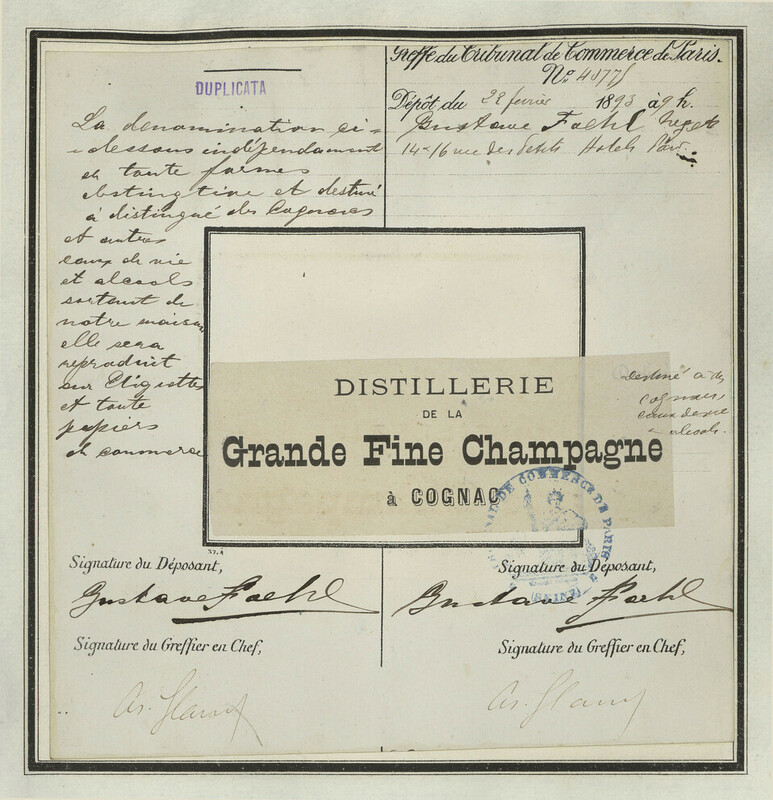 DUPLICATA
La dénomination ci-
-dessous indépendament
de toute formes
distingtive et destiné
à distingué des Cognacs
et autres
eaux de vie
et alcools
sortant de
notre maison
elle sera
reproduit
sur Etiquettes
et toute
papiers
de commerce
Greffe du Tribunal de Commerce de Paris.
No
Dépôt du 28 fevrier 1893 à 9 h.
Gustave Foehl Negt
14-16 rue des petits Hotels Paris
DISTILLERIE
DE LA
Grande Fine Champagne
à COGNAC
destiné à des
cognacs,
eaux de vie
alcools.
TRIBUNAL DE COMMERCE DE PARIS
(SEINE)
37.4
Signature du Déposant,
Gustave Foehl
Signature du Greffier en Chef,
Signature du Déposant,
Gustave Foehl
Signature du Greffier en Chef,